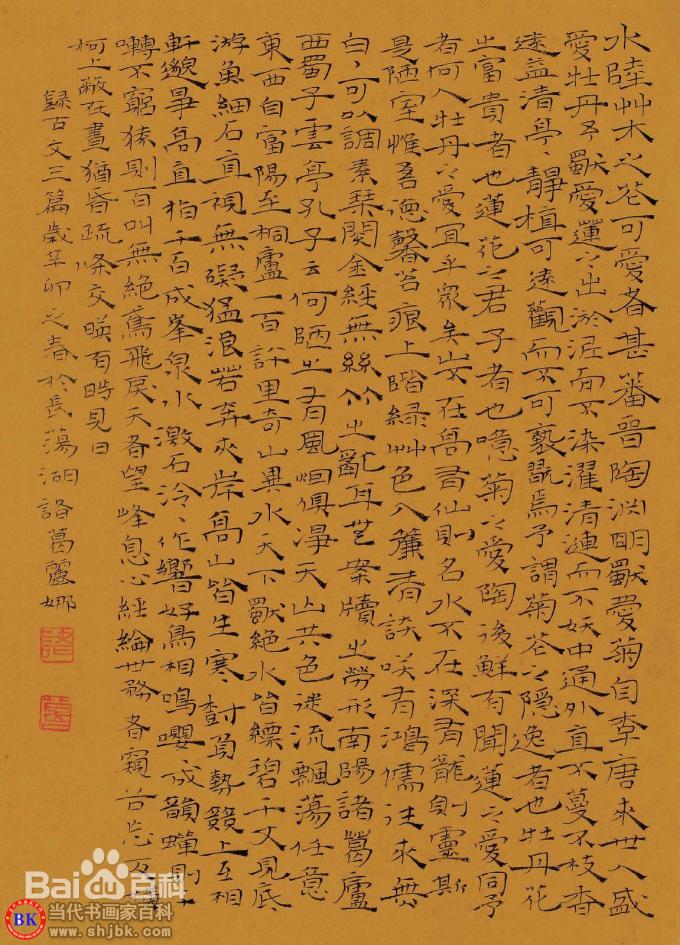 水陸艸木之花可愛者甚蕃晉陶渊明獨愛菊自李唐来世人盛
愛牡丹予獨愛蓮之出淤泥而不染濯清漣而不妖中通外直不蔓不枝香
遠益清亭〻靜植可遠觀而不可褻翫焉予謂菊花之隱逸者也牡丹花
之富貴者也蓮花之君子者也噫菊之愛陶後鮮有聞蓮之愛同予
者何人牡丹之愛宜乎眾矣山不在高有仙則名水不在深有龍則靈斯
是陋室惟吾德馨苔痕上階綠艸色入簾青談咲有鴻儒往来無
白丁可以調素琴閱金經無絲竹之亂耳無案牘之勞形南陽諸葛廬
西蜀子雲亭孔子云何陋之有風烟俱淨天山共色從流飄蕩任意
東西自富陽至桐廬一百許里奇山異水天下獨絕水皆縹碧千丈見底
游魚細石直視無礙猛浪若奔夾岸高山皆生寒樹負勢競上互相
軒邈爭高直指千百成峯泉水激石泠〻作響好鳥相鳴嚶〻成韻蟬則千
囀不窮猿則百叫無絕鳶飛戾天者望峰息心經綸世務者窺谷忘反橫
柯上蔽在晝猶昏疏條交暎有時見日
錄古文三篇歲辛卯之春於長蕩湖諸葛麗娜
Bai百科
BK
当代书画家百科
www.shjbk.com